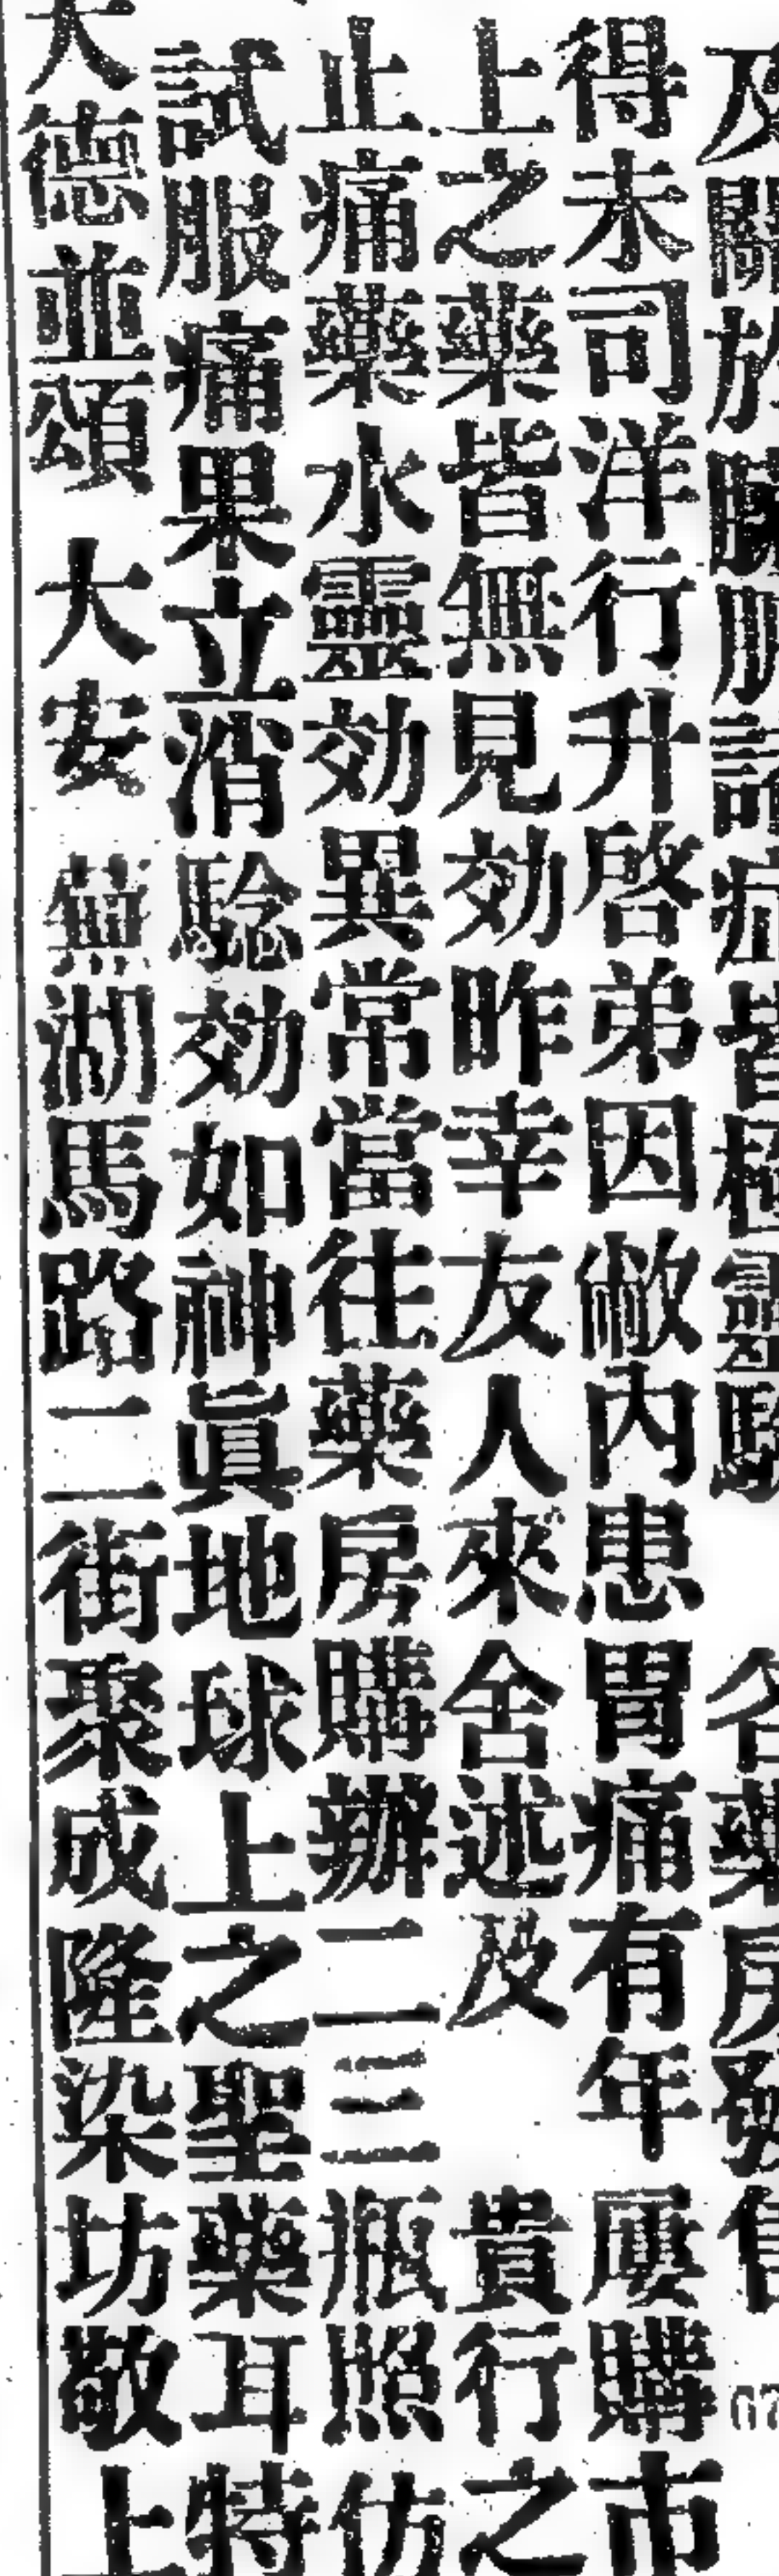 及關於諸症皆極靈驗 各藥房發售
得未司洋行升啓弟因敝內患胃痛有年屢購市
上之藥皆無見効昨幸友人來舍述及 貴行之
止痛藥水靈効異常當往藥房購辦二三瓶照仿
試服痛果立消騐効如神眞地球上之聖藥耳特
大德並頌 大安 蕪湖馬路二街聚成隆染坊敬上